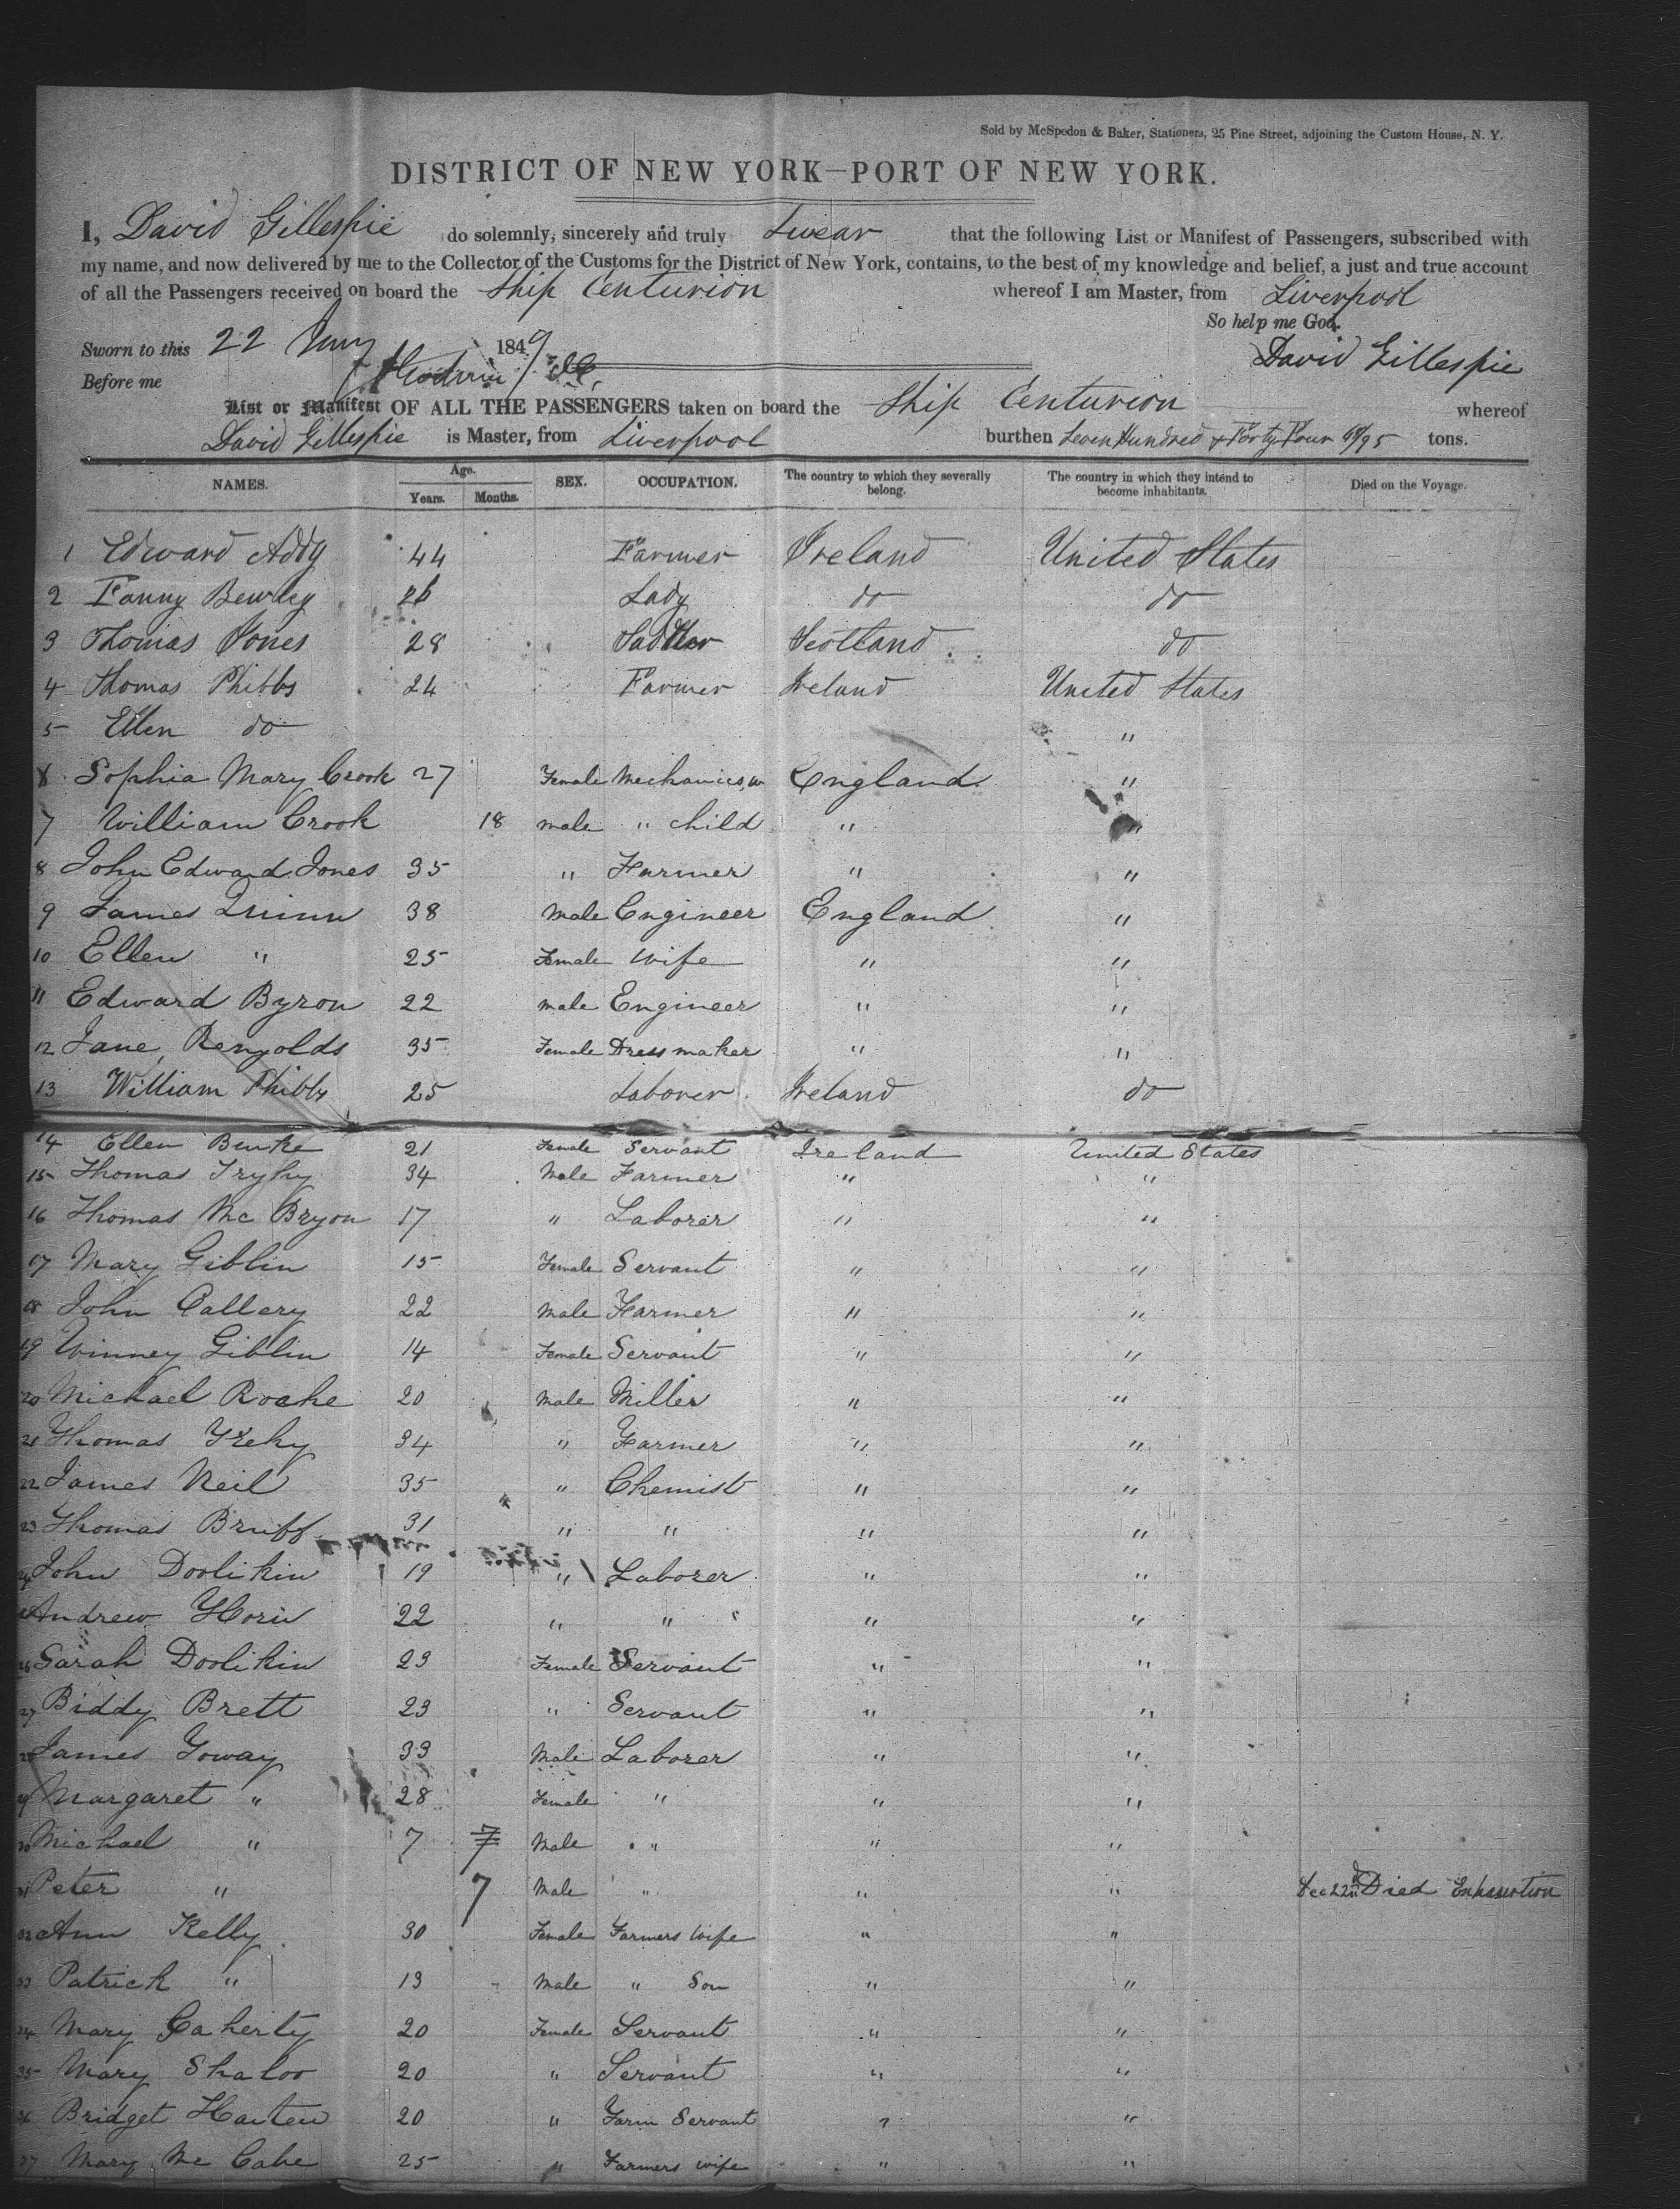 Sold by McSpedon & Baker, Stationers, 25 Pine Street, adjoining the Custom House, N. Y.
DISTRICT OF NEW YORK—PORT OF NEW YORK.
I, David Gillespie do solemnly, sincerely and truly Swear that the following List or Manifest of Passengers, subscribed with
my name, and now delivered by me to the Collector of the Customs for the District of New York, contains, to the best of my knowledge and belief, a just and true account
of all the Passengers received on board the Ship Centurion whereof I am Master, from Liverpool
So help me God.
Sworn to this 22 1849 David Gillespie
Before me
List or Manifest OF ALL THE PASSENGERS taken on board the Ship Centurion whereof
David Gillespie is Master, from Liverpool burthen Seven Hundred & Forty Four /95 tons.
NAMES. Age. Years. Months. SEX. OCCUPATION. The country to which they severally belong. The country in which they intend to become inhabitants. Died on the Voyage.
1 Edward Addy 44 Farmer Ireland United States
2 Fanny Bewley 26 Lady do do
3 Thomas Jones 28 Sadler Scotland do
4 Thomas Phibbs 24 Farmer Ireland United States
5 Ellen do "
6 Sophia Mary Crook 27 Female Mechanics, w England "
7 William Crook 18 male " child " "
8 John Edward Jones 35 " Farmer " "
9 James Quinn 38 Male Engineer England "
10 Ellen " 25 Female Wife " "
11 Edward Byron 22 male Engineer " "
12 Jane Renyolds 35 Female Dress maker " "
13 William Phibbs 25 Laborer Ireland do
14 Ellen Burke 21 Female Servant Ireland United States
15 Thomas 34 Male Farmer " "
16 Thomas Mc Bryon 17 " Laborer " "
17 Mary Giblin 15 Female Servant " "
18 John Callery 22 Male Farmer " "
19 Winney Giblin 14 Female Servant " "
20 Michael Roche 20 Male Miller " "
21 Thomas 34 " Farmer " "
22 James Neil 35 " Chemist " "
23 Thomas Bruff 31 " " " "
24 John Doolikin 19 " Laborer " "
Andrew Horin 22 " " " "
26 Sarah Doolikin 23 Female Servant " "
27 Biddy Brett 23 " Servant " "
28 James Goway 33 Male Laborer " "
29 Margaret " 28 Female " " "
30 Michael " 7 7 Male " " "
31 Peter " 7 Male " " " Dec 22nd Died Exhaustion
32 Ann Kelly 30 Female Farmers Wife " "
33 Patrick " 13 Male " Son " "
34 Mary Gaherty 20 Female Servant " "
35 Mary Shaloo 20 " Servant " "
36 Bridget Harten 20 " Farm Servant " "
37 Mary Mc Cabe 25 " Farmers wife " "